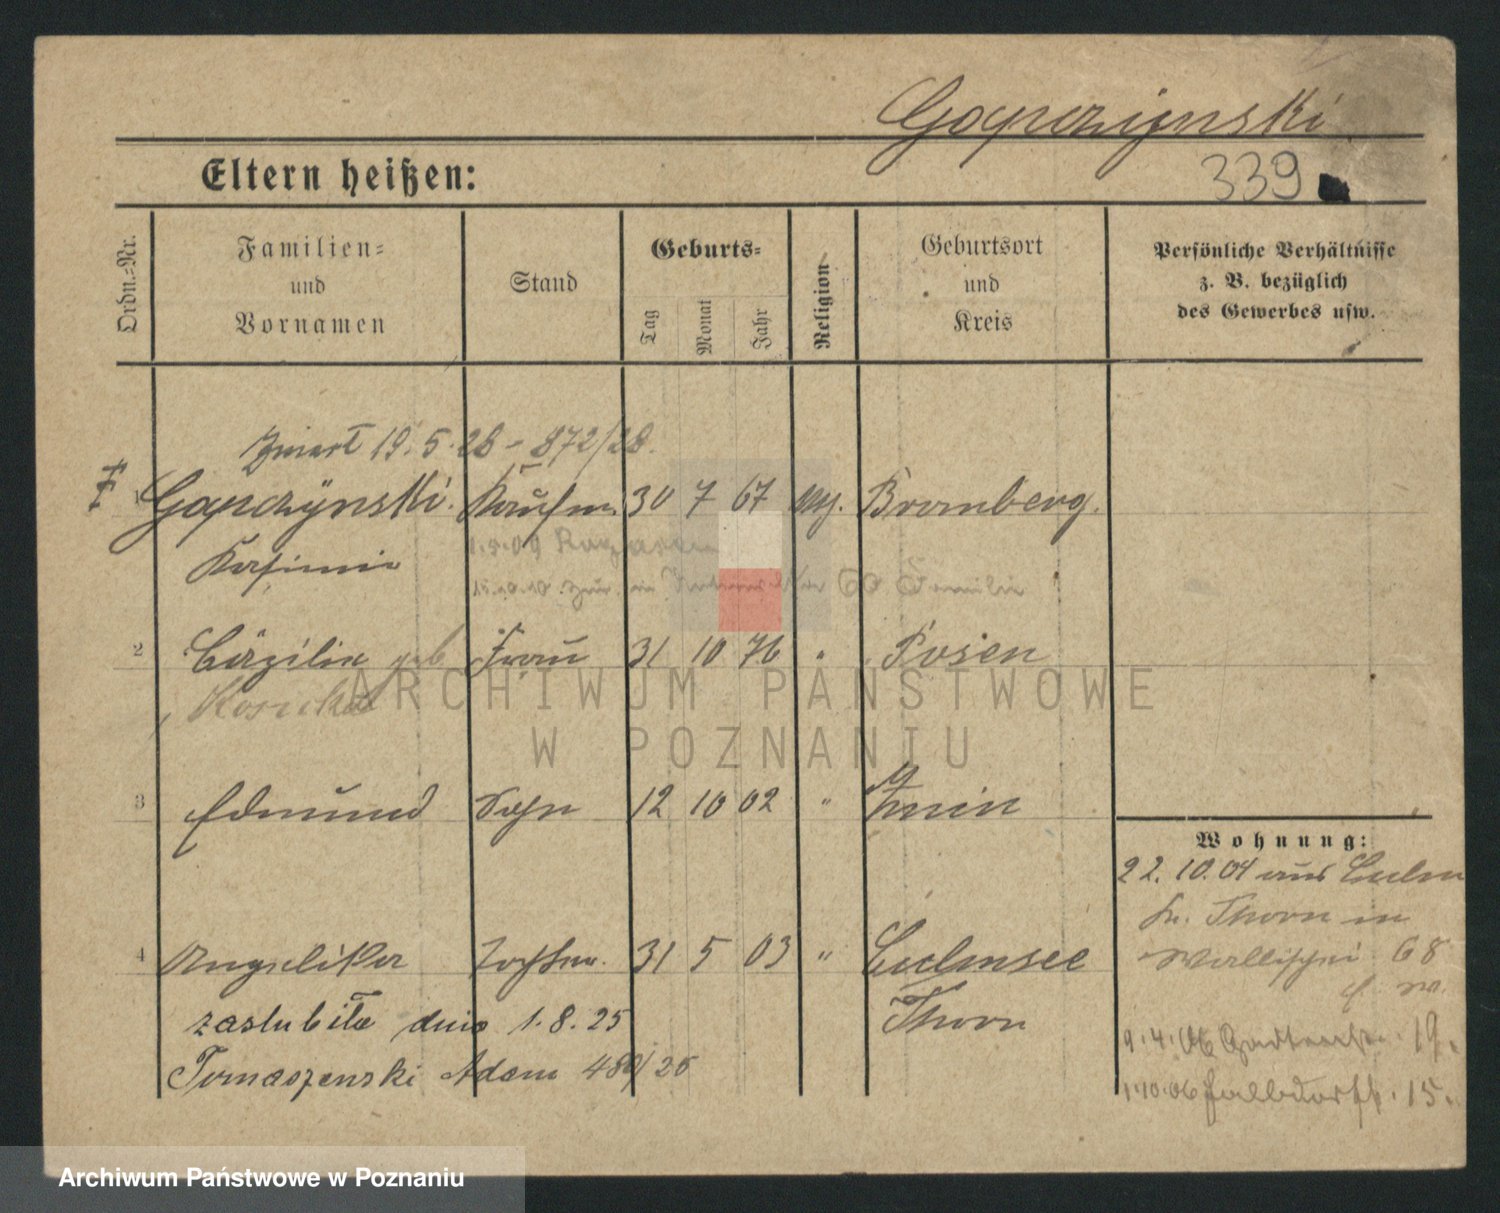 Gapczynski
339
Eltern heißen:
Ordn.-Nr.
Familien-
und
Vornamen
Stand
Geburts-
Tag
Monat
Jahr
Religion
Geburtsort
und
Kreis
Persönliche Verhältnisse
z. B. bezüglich
des Gewerbes usw.
Zmarł 19.5.28 - 872/28.
1 Gapczÿnski. Kaufm. 30 7 67 Bromberg.
Kasimir 1.5.09
15.10.10 60 Familie
2 Cäzilie geb Frau 31 10 76 " Posen
ARCHIWUM PAŃSTWOWE
W POZNANIU
3 Edmund Sohn 12 10 02 " Znin
4 Angelika Tochter. 31 5 03 " Culmsee
Thorn
zaslubiła dnia 1.8.25
Tomaszewski Adam 489/25
Wohnung:
22.10.04 aus Culm
Kr. Thorn in
Wallischei 68
9.4.06 Gartenstr. 19.
1.10.06 Halbdorfstr. 15.
Archiwum Państwowe w Poznaniu